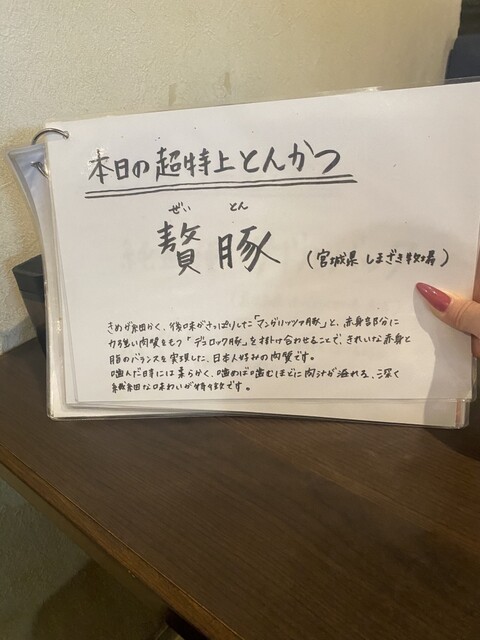 本日の超特上とんかつ
ぜい とん
贅豚 (宮城県 しまざき牧場)
きめが細かく、後味がさっぱりした「マンガリッツァ豚」と、赤身部分に
力強い肉質をもつ「デュロック豚」を掛け合わせることで、きれいな赤身と
脂のバランスを実現した、日本人好みの肉質です。
噛んだ時には柔らかく、噛めば噛むほどに肉汁が溢れる、深く
繊細な味わいが特徴です。